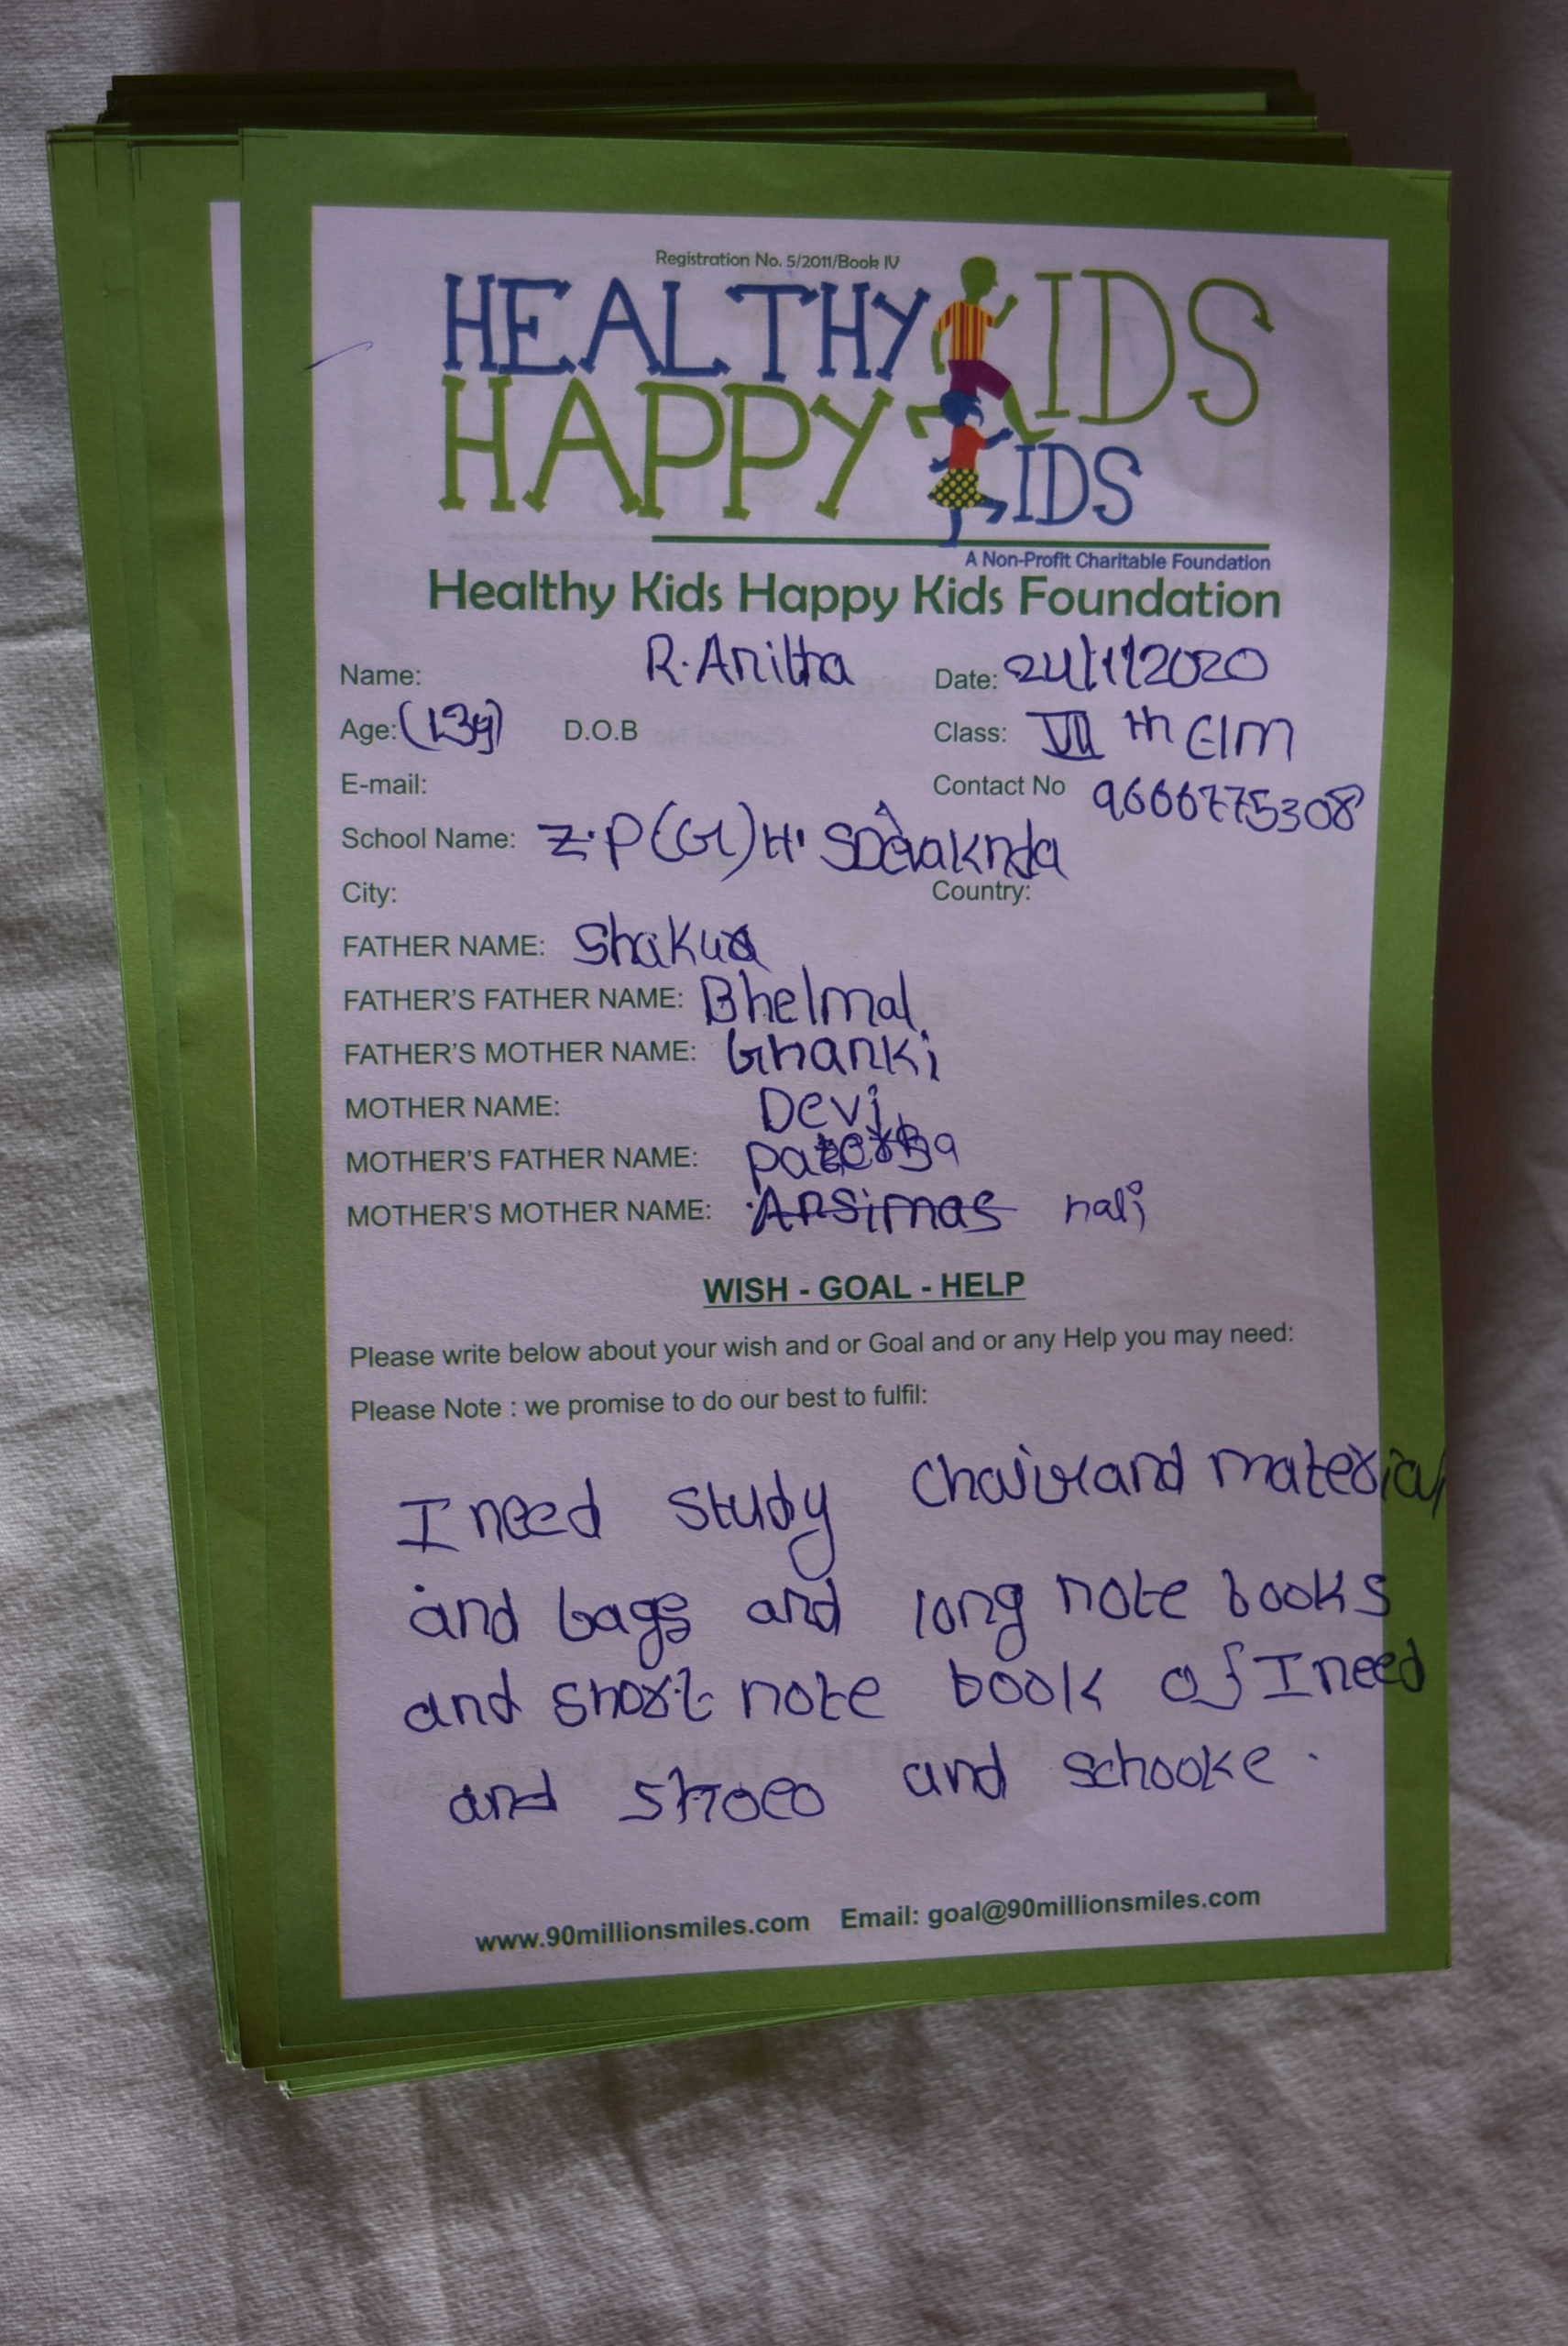 Registration No. 5/2011/Book IV
HEALTHY KIDS
HAPPY KIDS
A Non-Profit Charitable Foundation
Healthy Kids Happy Kids Foundation
Name: R. Anitha Date: 24/1/2020
Age: (13y) D.O.B Class: VII th E/M
E-mail: Contact No 9666775308
School Name: Z.P(G)H.S
City: Country:
FATHER NAME:
FATHER'S FATHER NAME: Bhelmal
FATHER'S MOTHER NAME: Ghanki
MOTHER NAME: Devi
MOTHER'S FATHER NAME:
MOTHER'S MOTHER NAME: Ansimas nali
WISH - GOAL - HELP
Please write below about your wish and or Goal and or any Help you may need:
Please Note : we promise to do our best to fulfil:
I need study and material
and bags and long note books
and short note book of I need
and shoeo and schooke.
www.90millionsmiles.com Email: goal@90millionsmiles.com